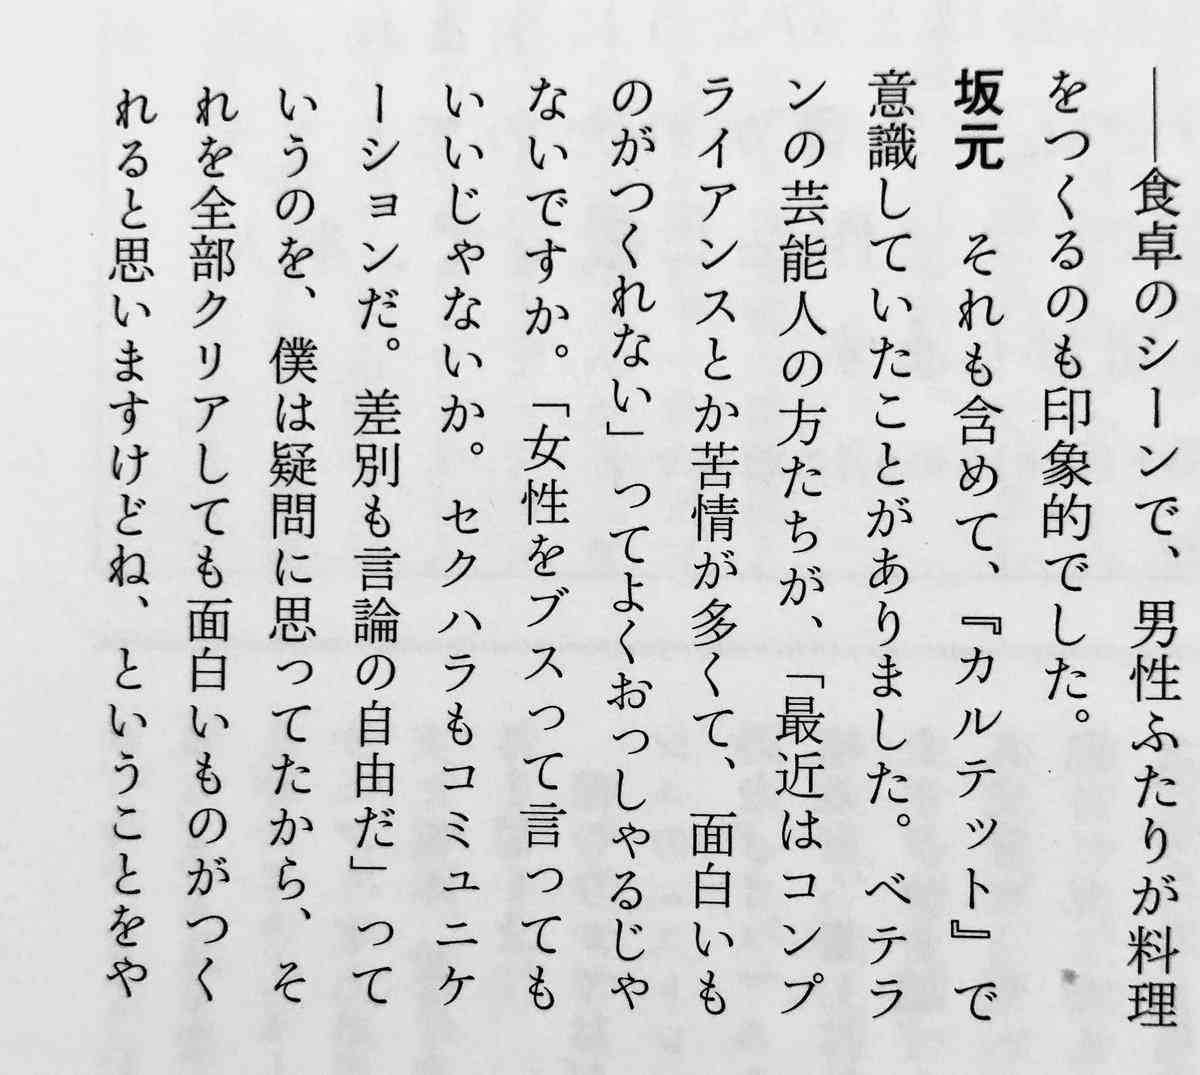 ――食卓のシーンで、男性ふたりが料理
をつくるのも印象的でした。
坂元　それも含めて、『カルテット』で
意識していたことがありました。ベテラ
ンの芸能人の方たちが、「最近はコンプ
ライアンスとか苦情が多くて、面白いも
のがつくれない」ってよくおっしゃるじゃ
ないですか。「女性をブスって言っても
いいじゃないか。セクハラもコミュニケ
ーションだ。差別も言論の自由だ」って
いうのを、僕は疑問に思ってたから、そ
れを全部クリアしても面白いものがつく
れると思いますけどね、ということをや